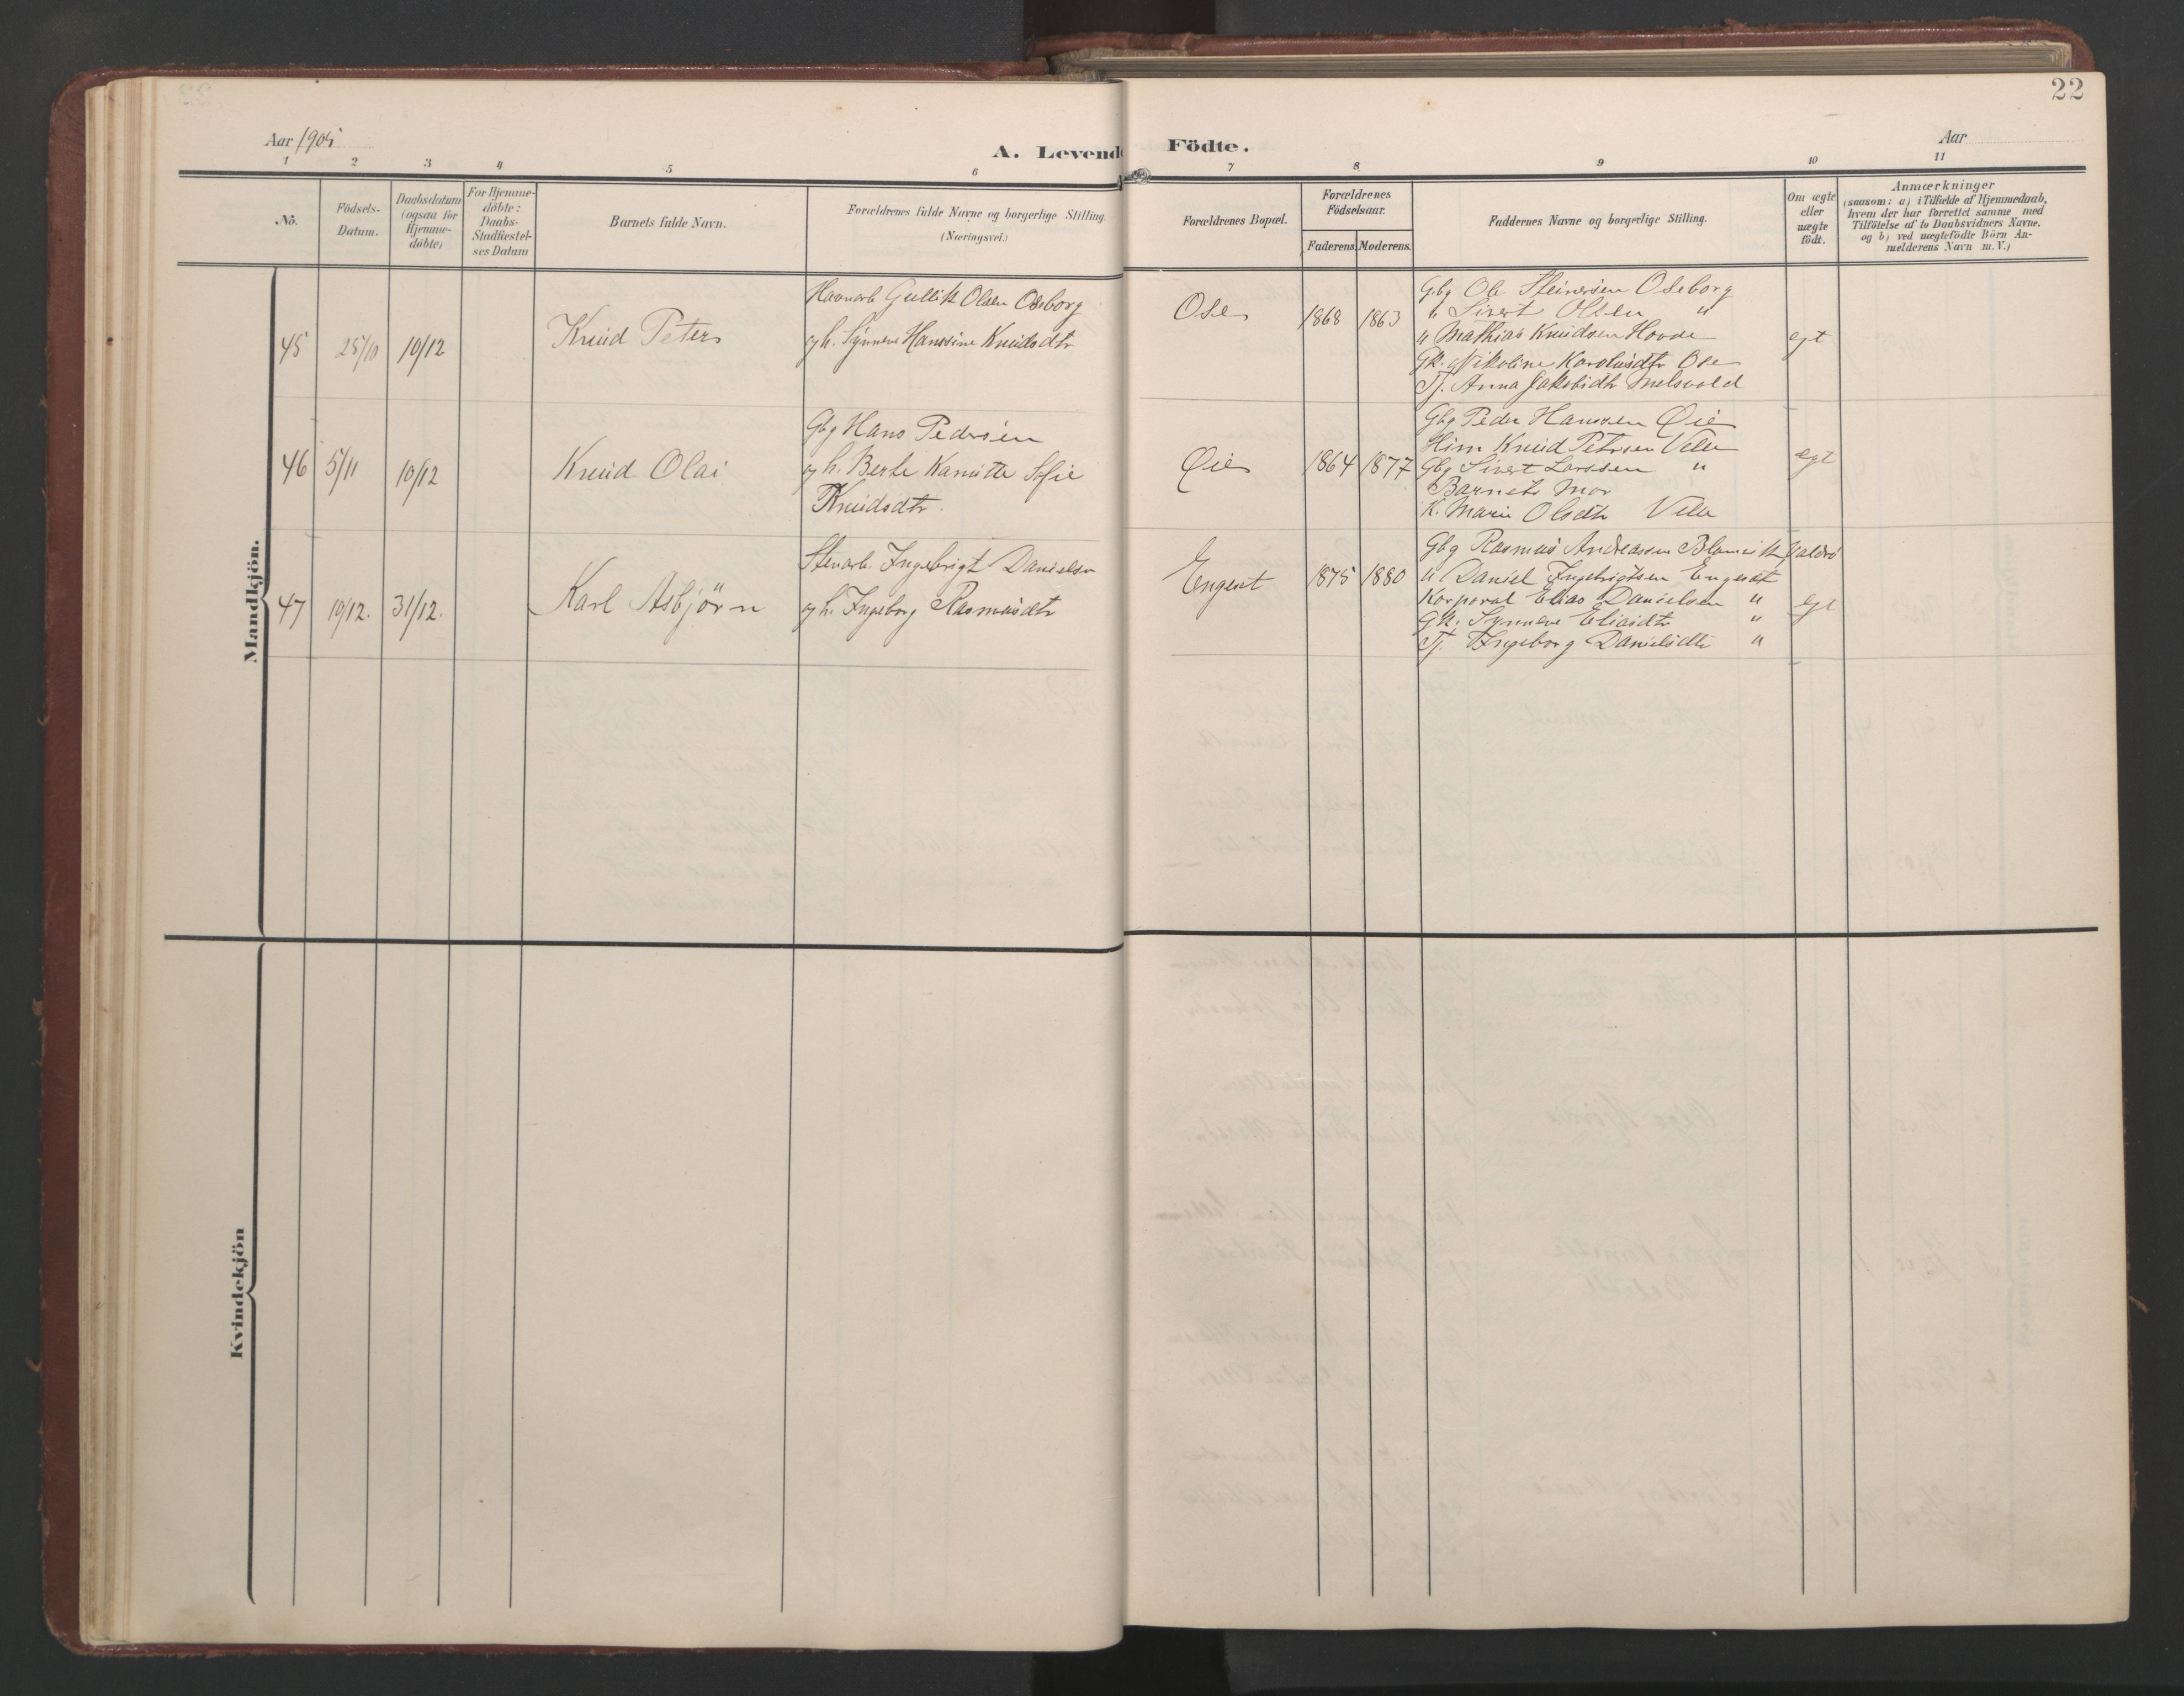 22
Aar 1905
A. Levende Födte.
Aar
1 2 3 4 5 6 7 8 9 10 11
No.
Födsels-Datum.
Daabsdatum (ogsaa for Hjemme-döbte)
For Hjemme-döbte: Daabs-Stadfæstel-ses Datum
Barnets fulde Navn.
Forældrenes fulde Navne og borgerlige Stilling. (Næringsvei.)
Forældrenes Bopæl.
Forældrenes Födselsaar.
Faderens. Moderens.
Faddernes Navne og borgerlige Stilling.
Om ægte eller uægte födt.
Anmærkninger
(saasom: a) i Tilfælde af Hjemmedaab,
hvem der har forrettet samme med
Tilföielse af to Daabsvidners Navne.
og b) ved uægtefödte Börn An-
melderens Navn m. V.)
Mandkjön.
45 25/10 10/12 Knud Peter
Havnarb Gullik Olsen Oseborg
og h. Synneve Hanssine Knudsdtr
Ose 1868 1863
Gbg Ole Steinersen Oseborg
" Sivert Olsen "
" Mathias Knudsen Hovde
Gk. Nikoline Karolusdtr Ose
Tj. Anna Jakobsdtr Melsvold
egt
46 5/11 10/12 Knud Olai
Gbg Hans Pedersen
og h. Berte Kamitte Sofie
Knudsdtr.
Øie 1864 1877
Gbg Peder Hanssen Øie
Knud Petersen Velle
Gbg Sivert Larssen "
Barnets Mor
K. Marie Olsdtr Velle
egt
47 10/12. 31/12. Karl Asbjörn
Stenarb. Ingebrigt Danielsen
og h. Ingeborg Rasmusdtr
Engeset 1875 1880
Gbg Rasmus Andreassen Blomvik Valdrö
" Daniel Ingebrigtsen Engeset
Korporal Elias Danielsen "
Gk. Synneve Eliasdtr "
Tj. Ingeborg Danielsdtr "
egt
Kvindekjön